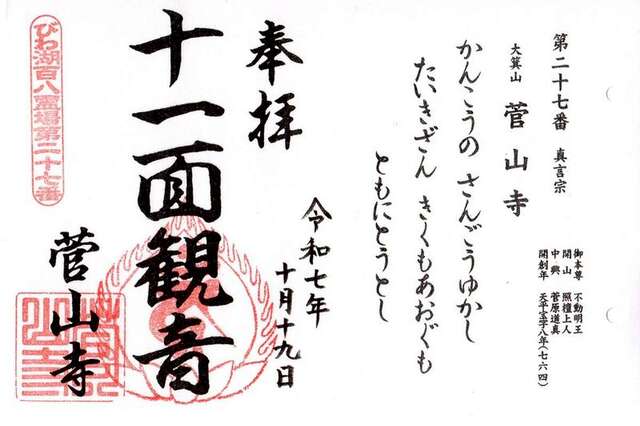 第二十七番 真言宗
大箕山 菅山寺
御本尊 不動明王
開山 照檀上人
中興 菅原道真
開創年 天平宝字八年(七六四)
かんこうの さんごうゆかし
たいきざん きくもあおぐも
ともにとうとし
奉拝
令和七年
十月十九日
十一面観音
菅山寺
びわ湖百八霊場第二十七番